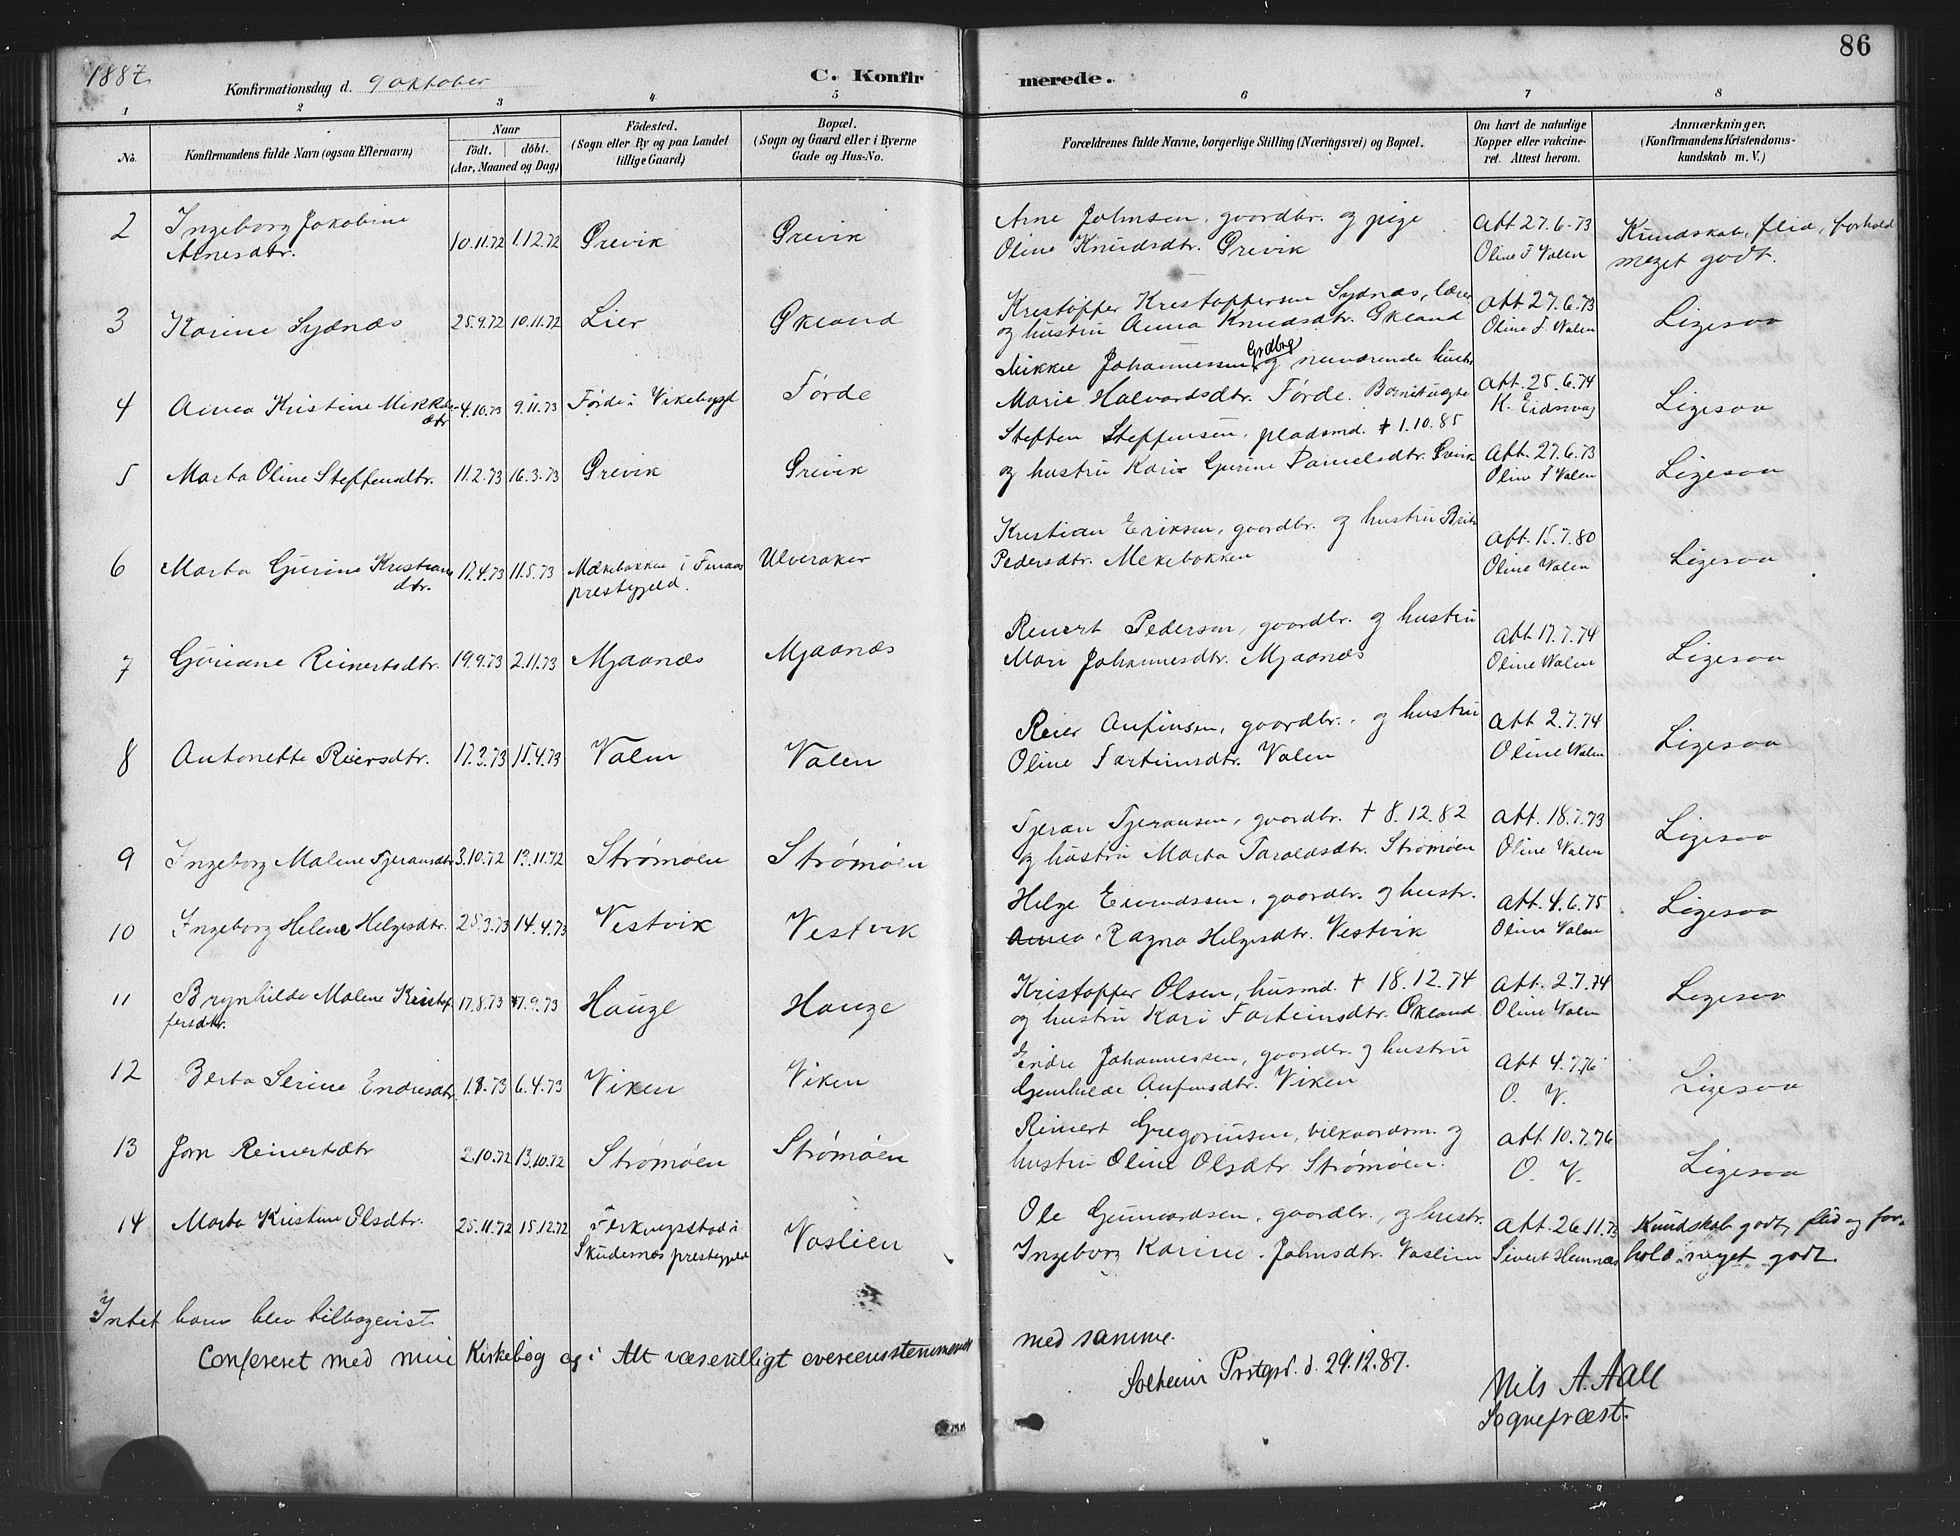 1887
86
Konfirmationsdag d. 9 oktober
C. Konfirmerede.
1 2 3 4 5 6 7 8
No.
Konfirmandens fulde Navn (ogsaa Efternavn)
Naar
födt. döbt.
(Aar, Maaned og Dag)
Födested.
(Sogn eller By og paa Landet
tillige Gaard)
Bopæl.
(Sogn og Gaard eller i Byerne
Gade og Hus-No.
Forældrenes fulde Navne, borgerlige Stilling (Næringsvei) og Bopæl.
Om havt de naturlige
Kopper eller vakcine-
ret. Attest herom.
Anmærkninger.
(Konfirmandens Kristendoms-
kundskab m. V.)
2 Ingeborg Jakobine
Arnesdtr. 10.11.72 1.12.72 Grevik Grevik
Arne Johnsen, gaardbr. og pige
Oline Knudsdtr. Grevik
Att 27.6.73
Oline T Valen
Kundskab, flid, forhold
meget godt.
3 Karine Sydnæs 25.9.72 10.11.72 Lier Økland
Kristoffer Kristoffersen Sydnæs, lærer
og hustru Anna Knudsdtr. Økland
Att 27.6.73
Oline T. Valen
Ligesaa
4 Anna Kristine Mikkels-
dtr 4.10.73 9.11.73 Førde i Vikebygd Førde
Mikkel Johannessen Grdbrg og nuværende hustr
Marie Halvardsdtr. Førde. Barnet uægte
Att. 25.6.74
K. Eidsvag
Ligesaa
5 Marta Oline Steffensdtr. 11.2.73 16.3.73 Grevik Grevik
Steffen Steffensen, pladsmd. † 1.10.85
og hustru Kari Gurine Danielsdtr. Grevik
Att. 27.6.73
Oline T Valen
Ligesaa
6 Marta Gurine Kristians
dtr. 17.4.73 11.5.73 Mækebakken i Finaas
prestegjeld. Ulveraker
Kristian Eriksen, gaardbr. og hustru Brita
Pedersdtr. Mekebakken
Att. 15.7.80
Oline Valen
Ligesaa
7 Guriane Reinertsdtr. 19.9.73 2.11.73 Mjaanæs Mjaanæs
Reinert Pedersen, gaardbr. og hustru
Mari Johannesdtr. Mjaanæs
Att. 17.7.74
Oline Valen
Ligesaa
8 Antonette Reiersdtr. 17.3.73 15.4.73 Valen Valen
Reier Anfinsen, gaardbr. og hustru
Oline Tarteinsdtr. Valen
Att 2.7.74
Oline Valen
Ligesaa
9 Ingeborg Malene Tjeransdtr 3.10.72 13.11.72 Strømøen Strømøen
Tjeran Tjeransen, gaardbr. † 8.12.82
og hustru Marta Taraldsdtr. Strømøen
Att. 18.7.73
Oline Valen
Ligesaa
10 Ingeborg Helene Helgesdtr. 25.3.73 14.4.73 Vestvik Vestvik
Helge Eivindssen, gaardbr. og hustr.
Anna Ragna Helgesdtr. Vestvik
Att. 4.6.75
Oline Valen
Ligesaa
11 Brynhilde Malene Kristof
fersdtr. 17.8.73 7.9.73 Hauge Hauge
Kristoffer Olsen, husmd. † 18.12.74
og hustru Kari Tarteinsdtr. Økland
Att. 2.7.74
Oline Valen
Ligesaa
12 Berta Serine Endresdtr. 1.8.73 6.4.73 Viken Viken
Endre Johannessen, gaardbr. og hustru
Gunhilde Anfinsdtr. Viken
Att 4.7.76
O. V.
Ligesaa
13 Jorn Reinertsdtr 2.10.72 13.10.72 Strømøen Strømøen
Reinert Gregoriusen, vilkaarsm. og
hustru Oline Olsdtr. Strømøen.
Att. 10.7.76
O. V.
Ligesaa
14 Marta Kristine Olsdtr. 25.11.72 15.12.72 Ferkingstad i
Skudesnæs prestegjeld Vaslien
Ole Gunnardsen, gaardbr., og hustr.
Ingeborg Karine Johnsdtr. Vaslien
Att. 26.11.73
Sivert Hemnæs
Kundskab godt, flid og for-
hold meget godt.
Intet barn blev tilbagevist
Confereret med min Kirkebog og i Alt væsentligt overeensstemmende med samme.
Solheim Prstgrd. d. 29.12.87.
Nils A. Aall
Sognepræst.